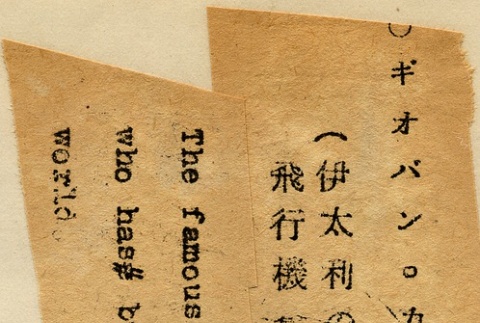 ○ギオバン。カ
（伊太利の
飛行機
The famous
who has# b
world.